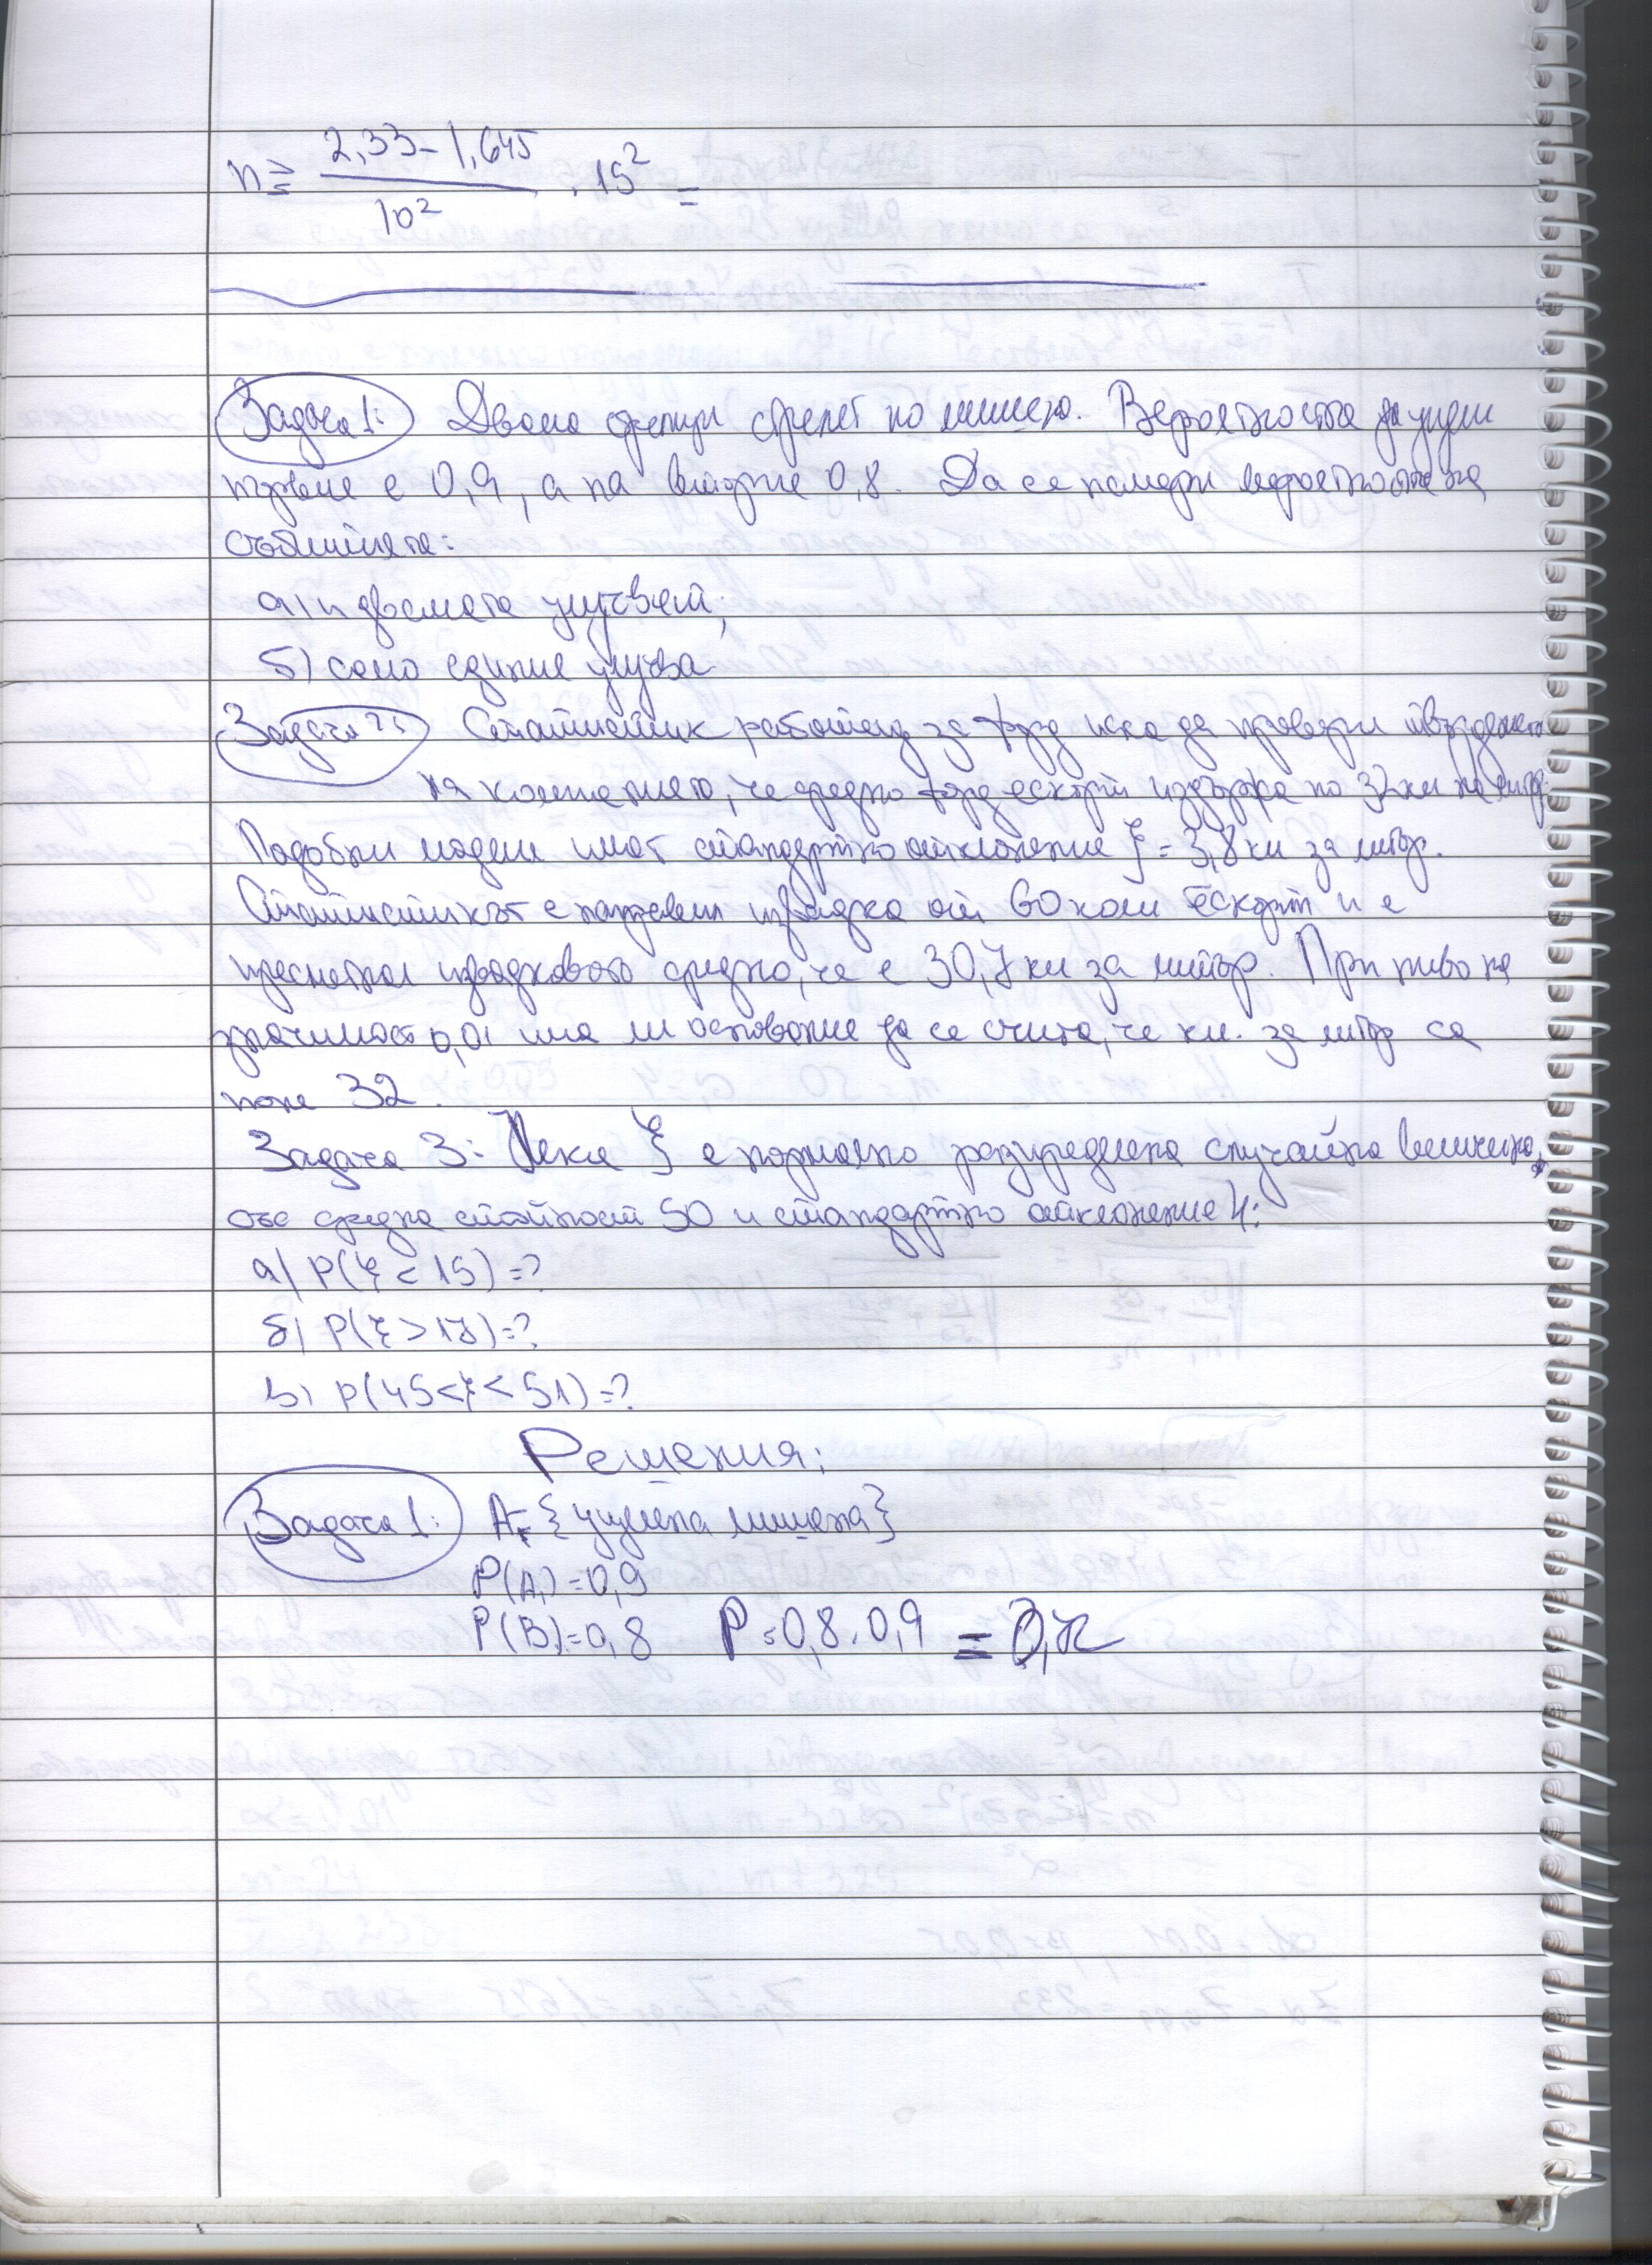 n ≥ 2,33 - 1,645 / 10² . 15² =
Задача 1: Двама стрелци стрелят по мишена. Вероятността да уцели
първия е 0,9, а на втория 0,8. Да се намери вероятността на
събитията:
а) и двамата уцелват;
б) само единия уцелва.
Задача 2: Статистик работещ за форд иска да провери твърдението
на компанията, че средно форд ескорт издържа по 32 км на литър.
Подобни модели имат стандартно отклонение ξ = 3,8 км за литър.
Статистикът е направил извадка от 60 коли ескорт и е
пресметнал извадковото средно, че е 30,7 км за литър. При ниво на
значимост 0,01 има ли основание да се счита, че км. за литър са
поне 32.
Задача 3: Нека ξ е нормално разпределена случайна величина,
със средна стойност 50 и стандартно отклонение 4:
а) P(ξ < 15) = ?
б) P(ξ > 17) = ?
в) P(45 < ξ < 51) = ?
Решения:
Задача 1: A = {уцелена мишена}
P(A) = 0,9
P(B) = 0,8 P = 0,8 . 0,9 = 0,72